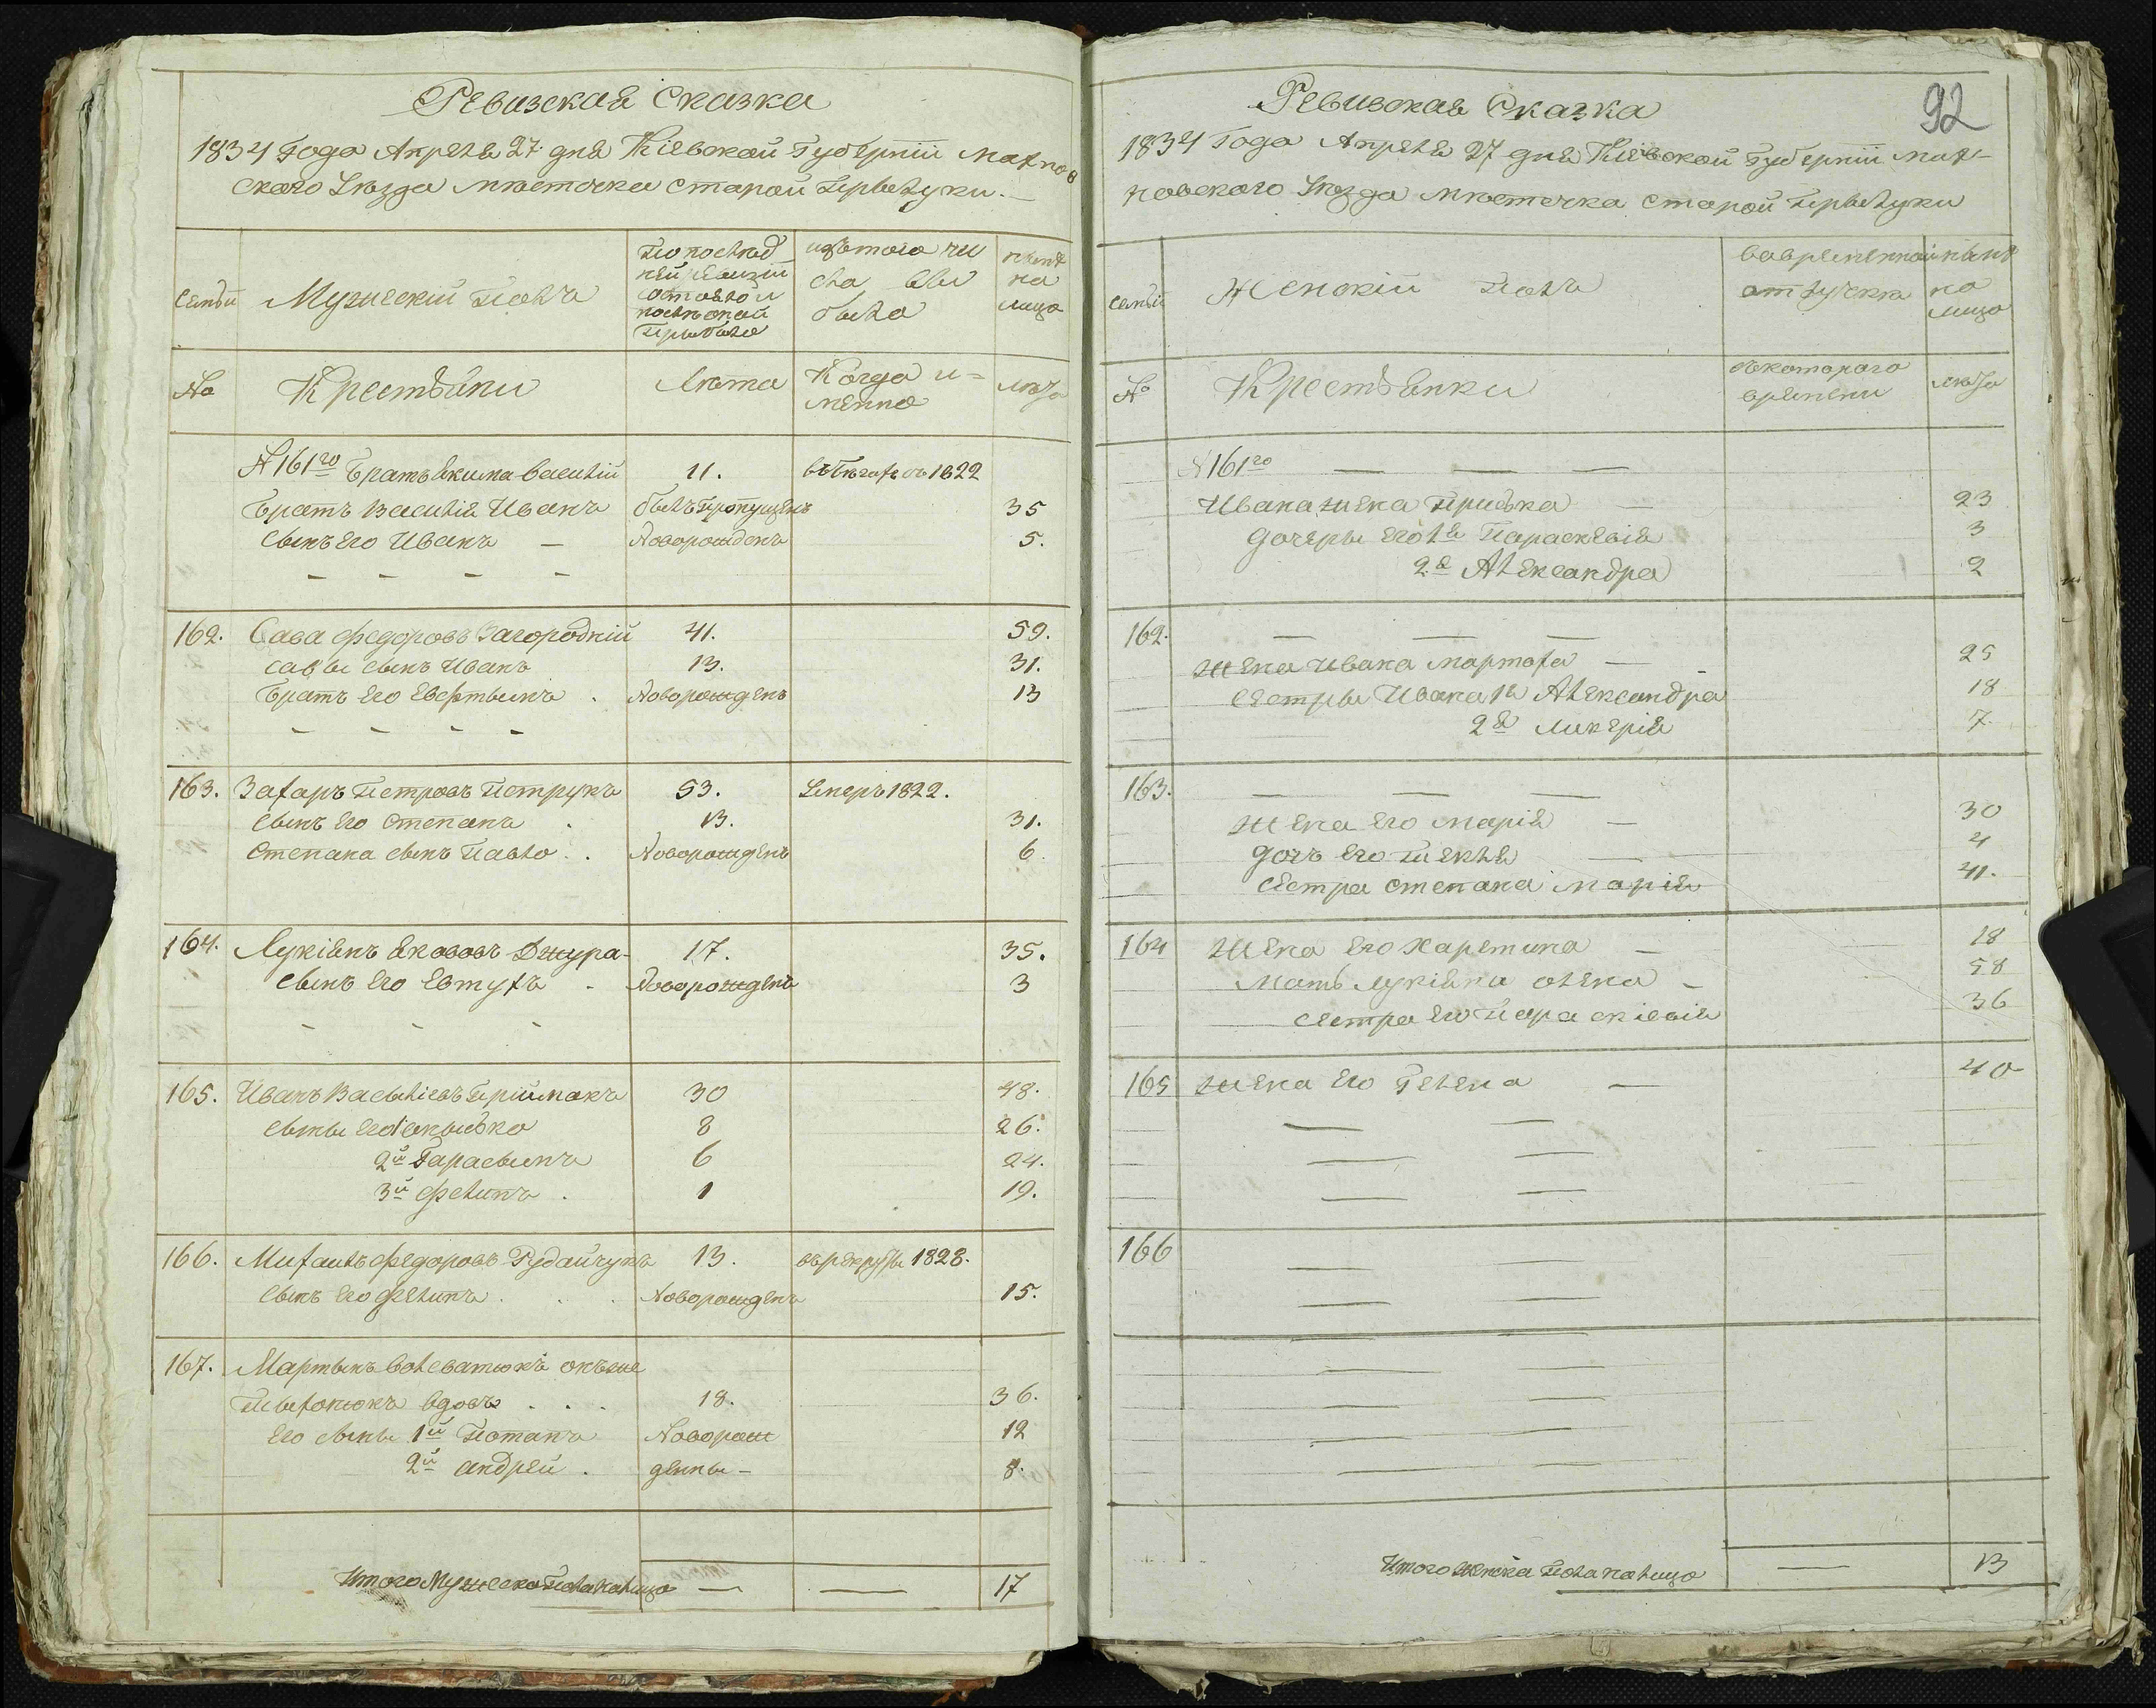 Ревизская Сказка
1834 Года Апреля 27 дня Кіевской Губерніи Махнов
ского Уѣзда мѣстечка Старой Прылуки.
Семьи
Мужескій Полъ
По послѣд
ней ревизіи
состояло и
послѣ оной
Прибыло
изъ того чи
сла вы
было
нынѣ
на
лицо
№
Крестьяни
Лѣта
Когда и=
менно
Лѣта
№161го Братъ Якима Василій 11. въ бѣгахъ съ 1822
Братъ Василія Иванъ былъ пропущенъ 35
Сынъ его Иванъ — Новорожденъ 5.
162. Сава Федоровъ Загородній 41. 59.
Савы сынъ Иванъ 13. 31.
Братъ его Евфтынъ . Новорожденъ 13
163. Захаръ Петровъ Петрукъ 53. Умеръ 1822.
Сынъ его Степанъ . 13. 31.
Степана сынъ Павло . . Новорожденъ 6.
164. Лукіянъ Яковъ Джура- 17. 35.
Сынъ его Евтухъ - Новорожденъ 3
165. Иванъ Васыліевъ Пріймакъ 30 48.
Сыны его 1 8 26.
2й Гарасымъ 6 24.
3й Филипъ . 1 19.
166. Михаилъ Федоровъ Рудайчукъ 13. въ рекруты 1828.
Сынъ его Филипъ . . . Новорожденъ 15.
167. Мартынъ онъ же
вдовъ . . . 18. 36.
Его сыны 1й Потапъ Новорож 12
2й Андрей . денны - 8.
Итого Мужеска Пола на лицо — — 17
92
Ревизская Сказка
1834 Года Апреля 27 дня Кіевской Губерніи Мах-
новского Уѣзда мѣстечка Старой Прылуки
Семьи
Женскій Полъ
во временной
отлучкѣ
нынѣ
на
лицо
№
Крестьянки
съ которого
времени
Лѣта
№161го — — —
Ивана жена Приська — 23
дочеры его 1я Параскевія 3
2я Александра 2
162. — — —
Жена Ивана Мартоха — 25
Сестры Ивана 1я Александра 18
2я Ликерія 7.
163. — — —
Жена его Марія — 30
Дочъ его Текля — 4
Сестра Степана Марія 41.
164 Жена его Харетина — 18
Мать Лукіяна Олена - 58
Сестра его Параскіевія 36
165 Жена его Гелена — 40
166
Итого Женска Пола на лицо — 13